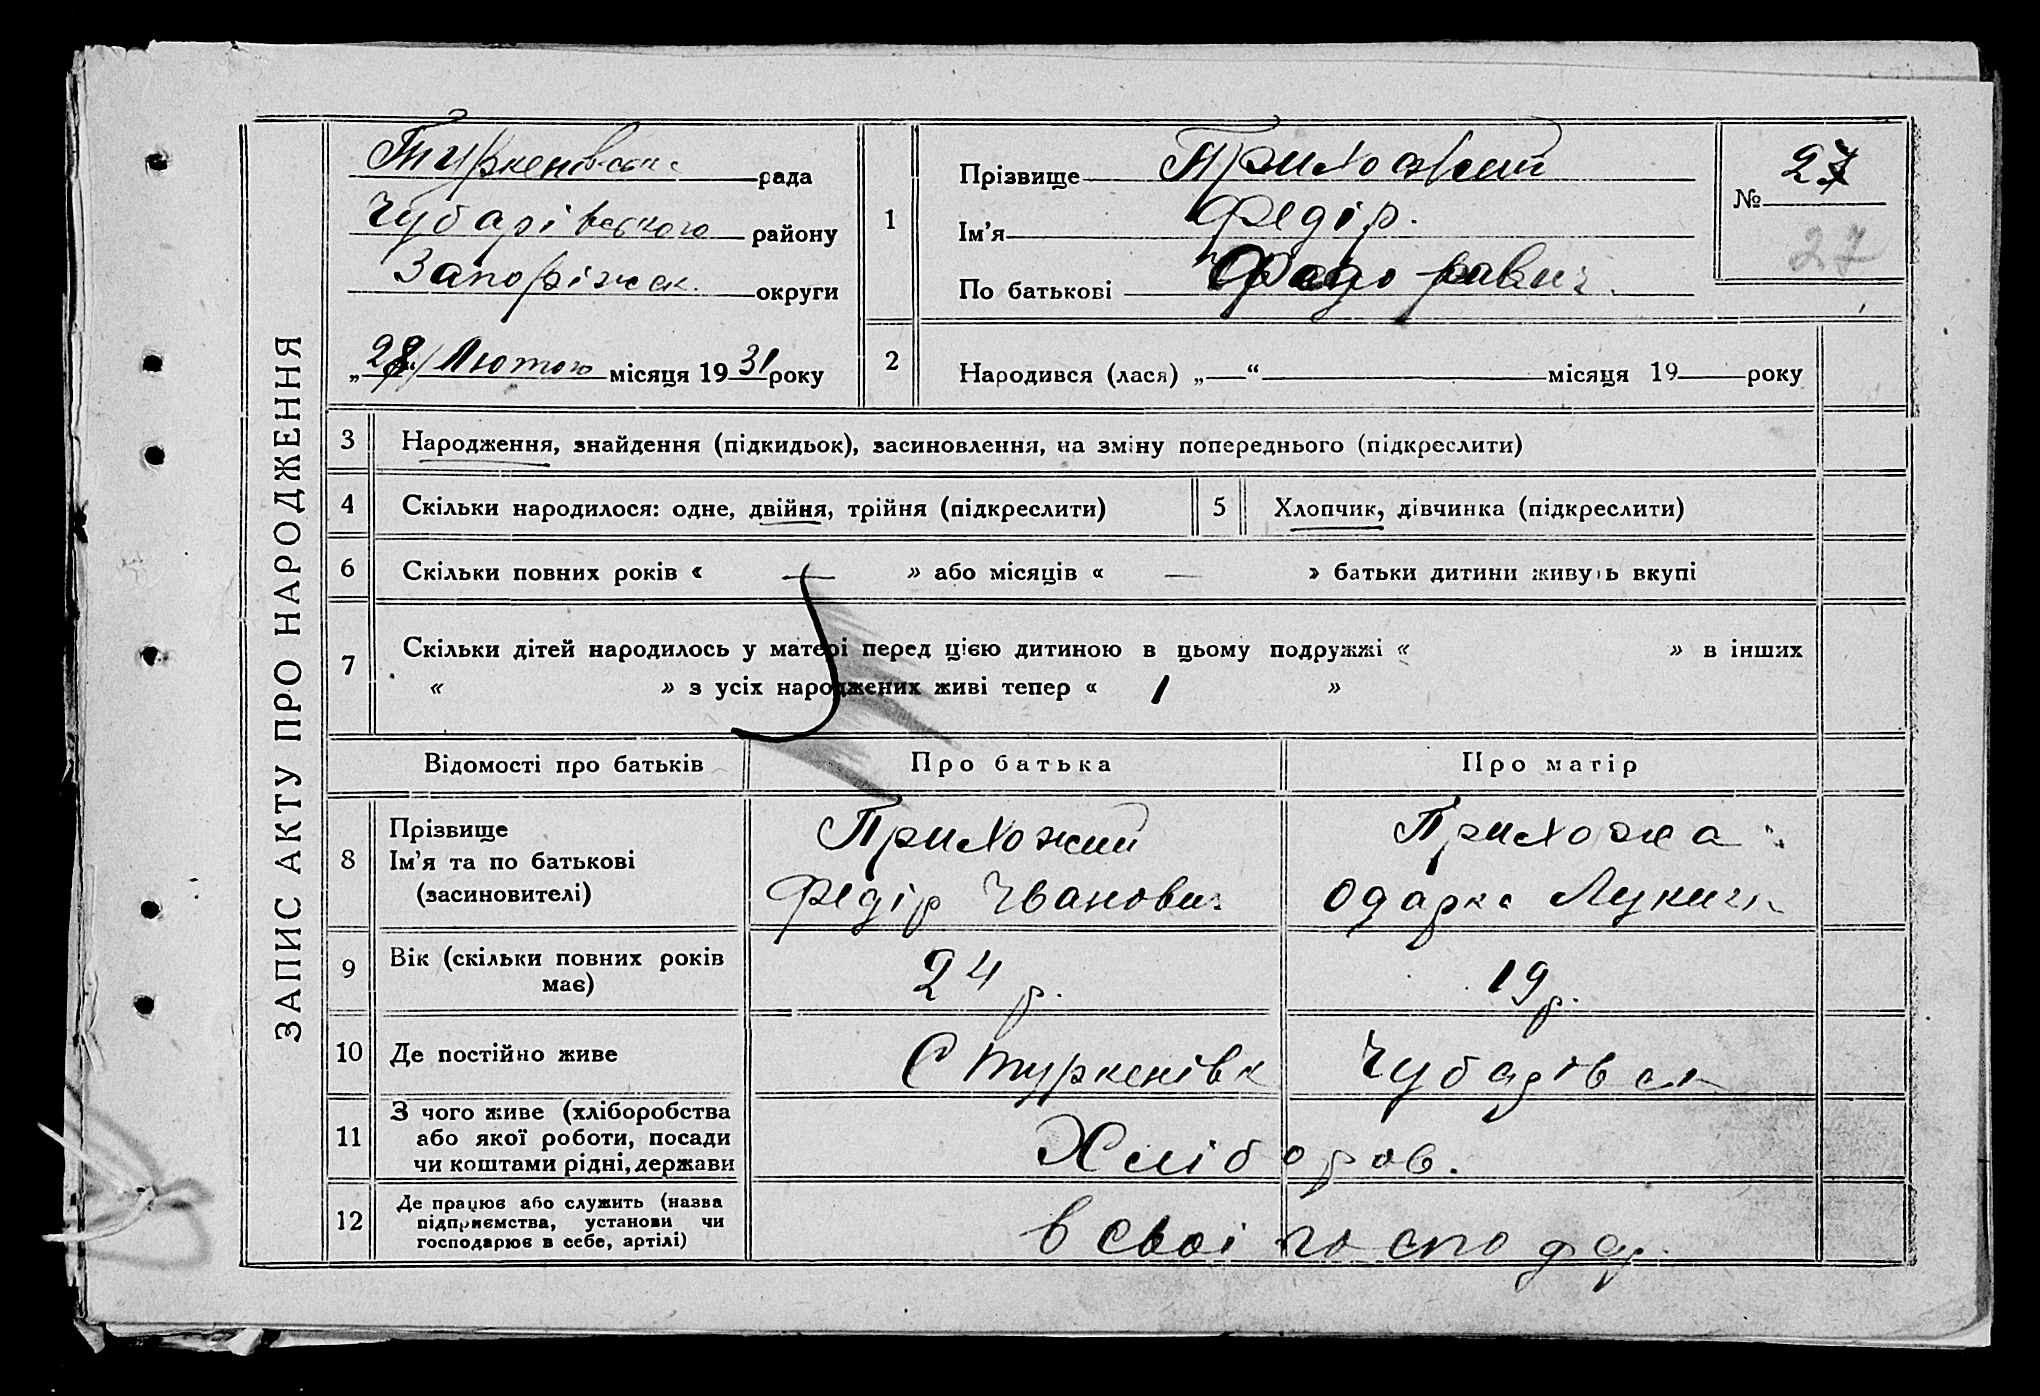 ЗАПИС АКТУ ПРО НАРОДЖЕННЯ
Туркенівськ. рада
Чубарівського району
Запоріжськ. округи
„28" Лютого місяця 1931 року
1
Прізвище Прихожий
Ім'я Федір.
По батькові Федорович.
№ 27
27
2 Народився (лася) „ “ місяця 19 року
3 Народження, знайдення (підкидьок), засиновлення, на зміну попереднього (підкреслити)
4 Скільки народилося: одне, двійня, трійня (підкреслити)
5 Хлопчик, дівчинка (підкреслити)
6 Скільки повних років « — » або місяців « — » батьки дитини живуть вкупі
7 Скільки дітей народилось у матері перед цією дитиною в цьому подружжі « » в інших
« » з усіх народжених живі тепер « 1 »
Відомості про батьків Про батька Про матір
8 Прізвище
Ім'я та по батькові
(засиновителі)
Прихожий
Федір Іванович
Прихожа
Одарка Лукич
9 Вік (скільки повних років
має)
24 р.
19 р.
10 Де постійно живе
С Туркенівк Чубарівськ
11 З чого живе (хліборобства
або якої роботи, посади
чи коштами рідні, держави
Хлібороб.
12 Де працює або служить (назва
підприємства, установи чи
господарює в себе, артілі)
в свої господар.